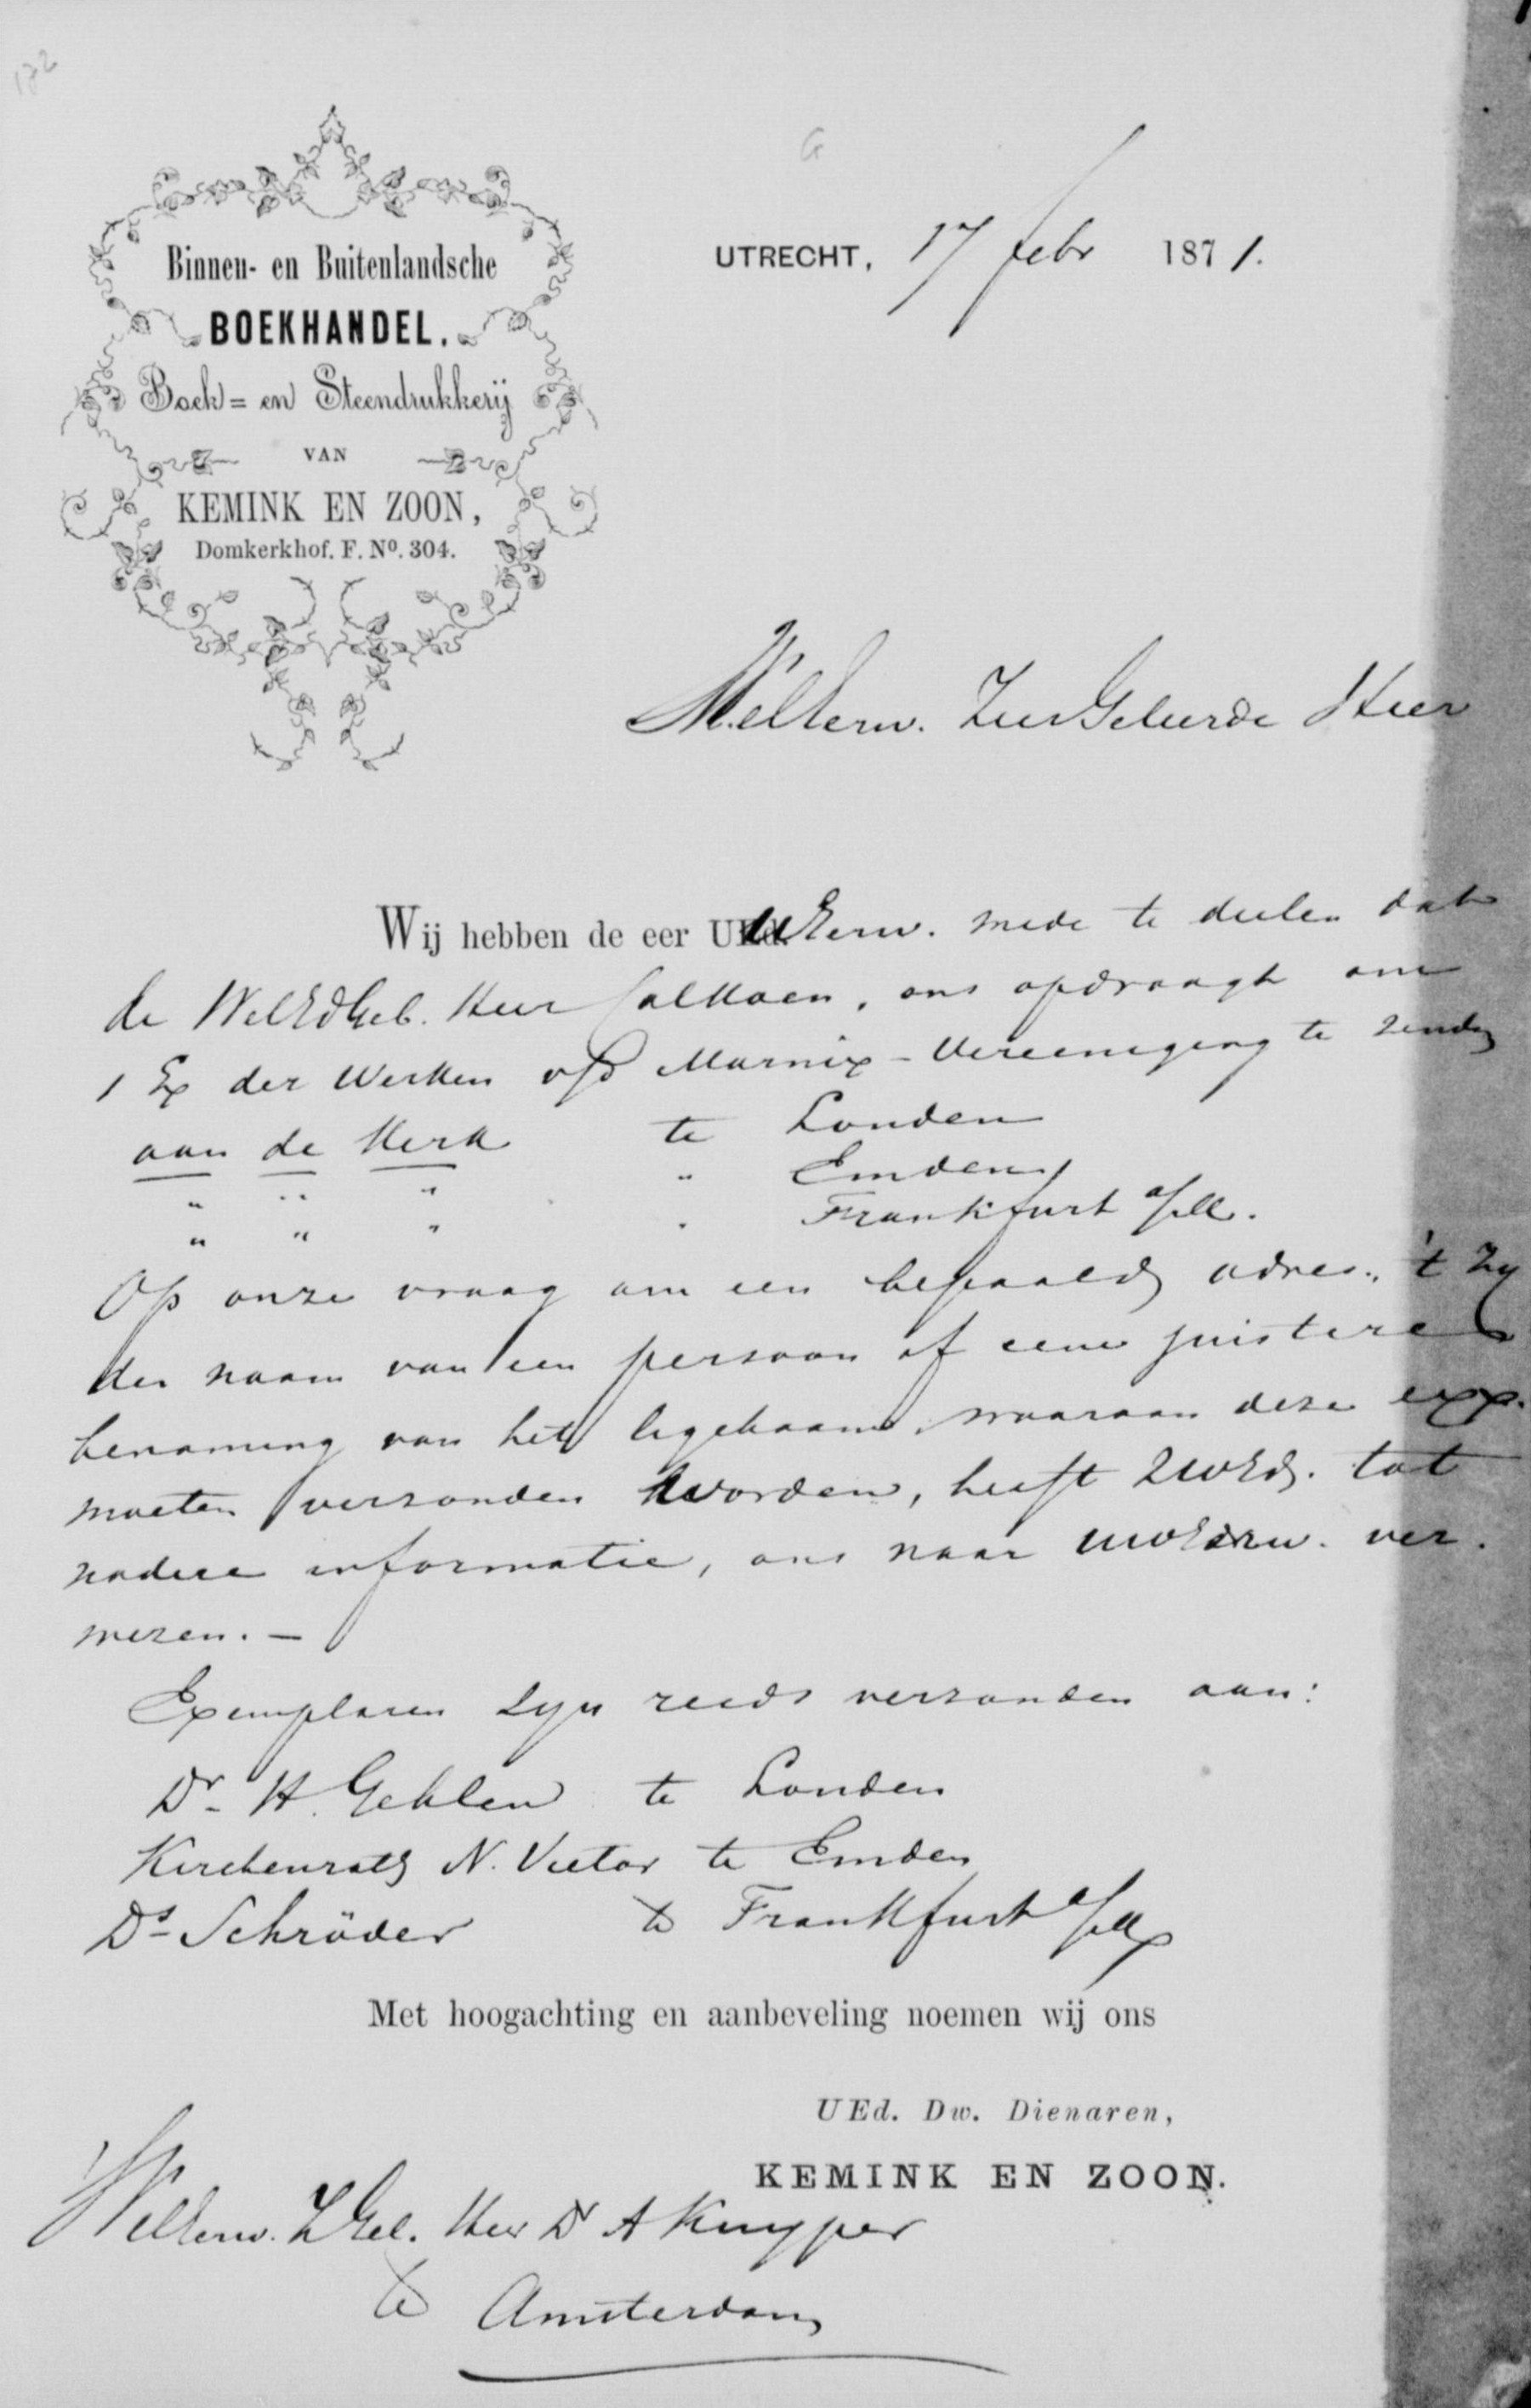 172
G
Binnen- en Buitenlandsche
BOEKHANDEL.
Boek- en Steendrukkerij
VAN
KEMINK EN ZOON,
Domkerkhof. F. Nº. 304.
UTRECHT, 17 febr 1871.
WelEerw. ZeerGeleerde Heer
Wij hebben de eer UWEerw. mede te deelen dat
de WelEdGeb. Heer Calkoen, ons opdraagt om
1 Ex der Werken v/d Marnix-Vereeniging te zenden
aan de Kerk te Londen
" " " " Emden
" " " " Frankfurt a/M.
Op onze vraag om een bepaald adres, 't zy
den naam van een persoon of eene juistere
benaming van het ligchaam, waaraan deze expp.
moeten verzonden worden, heeft ZWEd. tot
nadere informatie, ons naar UWEerw. ver-
wezen. —
Exemplaren zyn reeds verzonden aan:
Dr. H. Gehlen te Londen
Kirchenrath N. Vietor te Emden
Ds Schröder te Frankfurt a/M
Met hoogachting en aanbeveling noemen wij ons
UEd. Dw. Dienaren,
KEMINK EN ZOON.
WelEerw. ZGel. Heer Dr A Kuyper
te Amsterdam